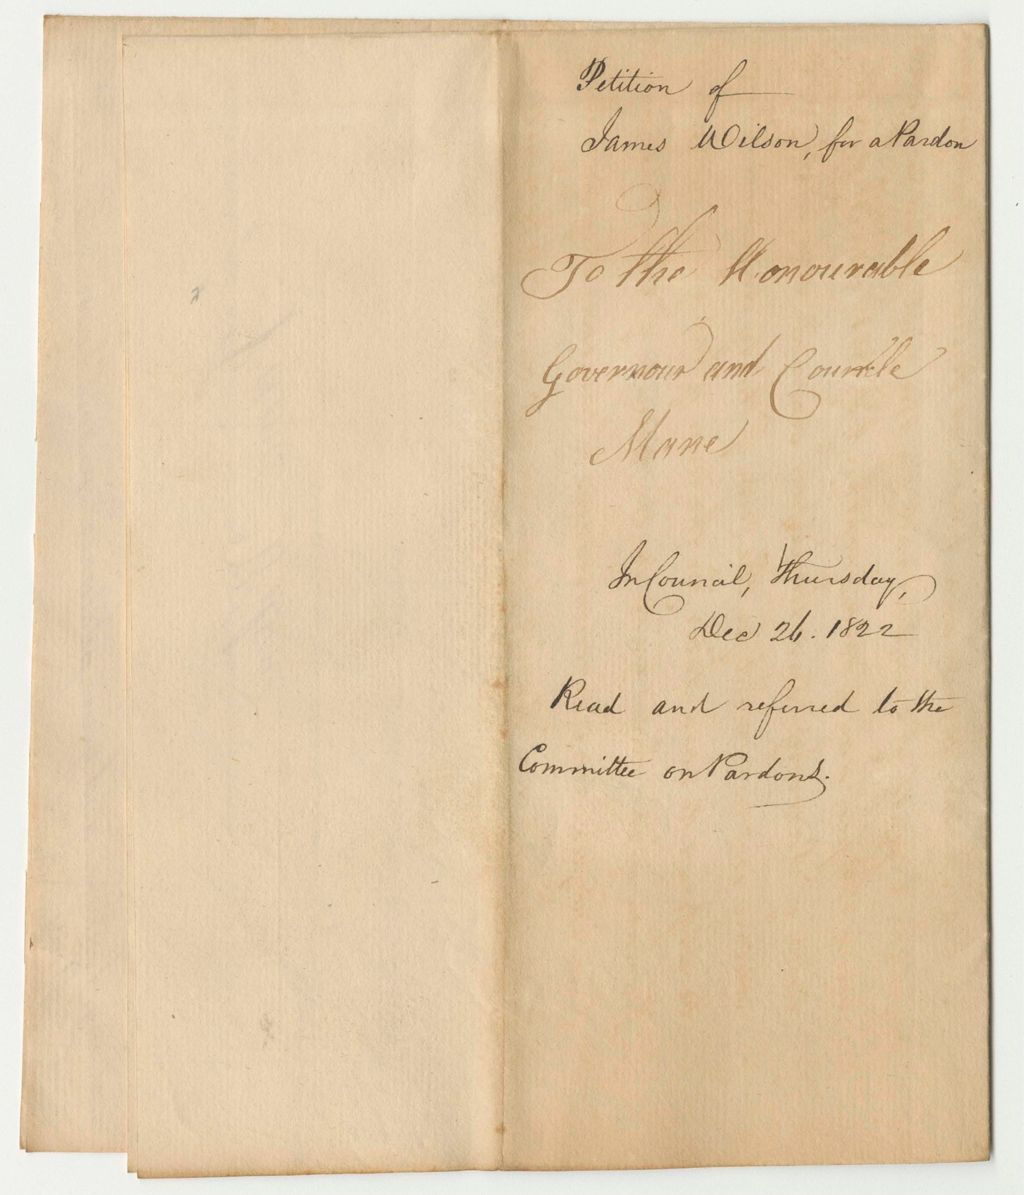 Petition of
James Wilson, for a Pardon
To the Honourable
Governour and Councle
Mane
In Council, Thursday,
Dec 26. 1822
Read and referred to the
Committee on Pardons.